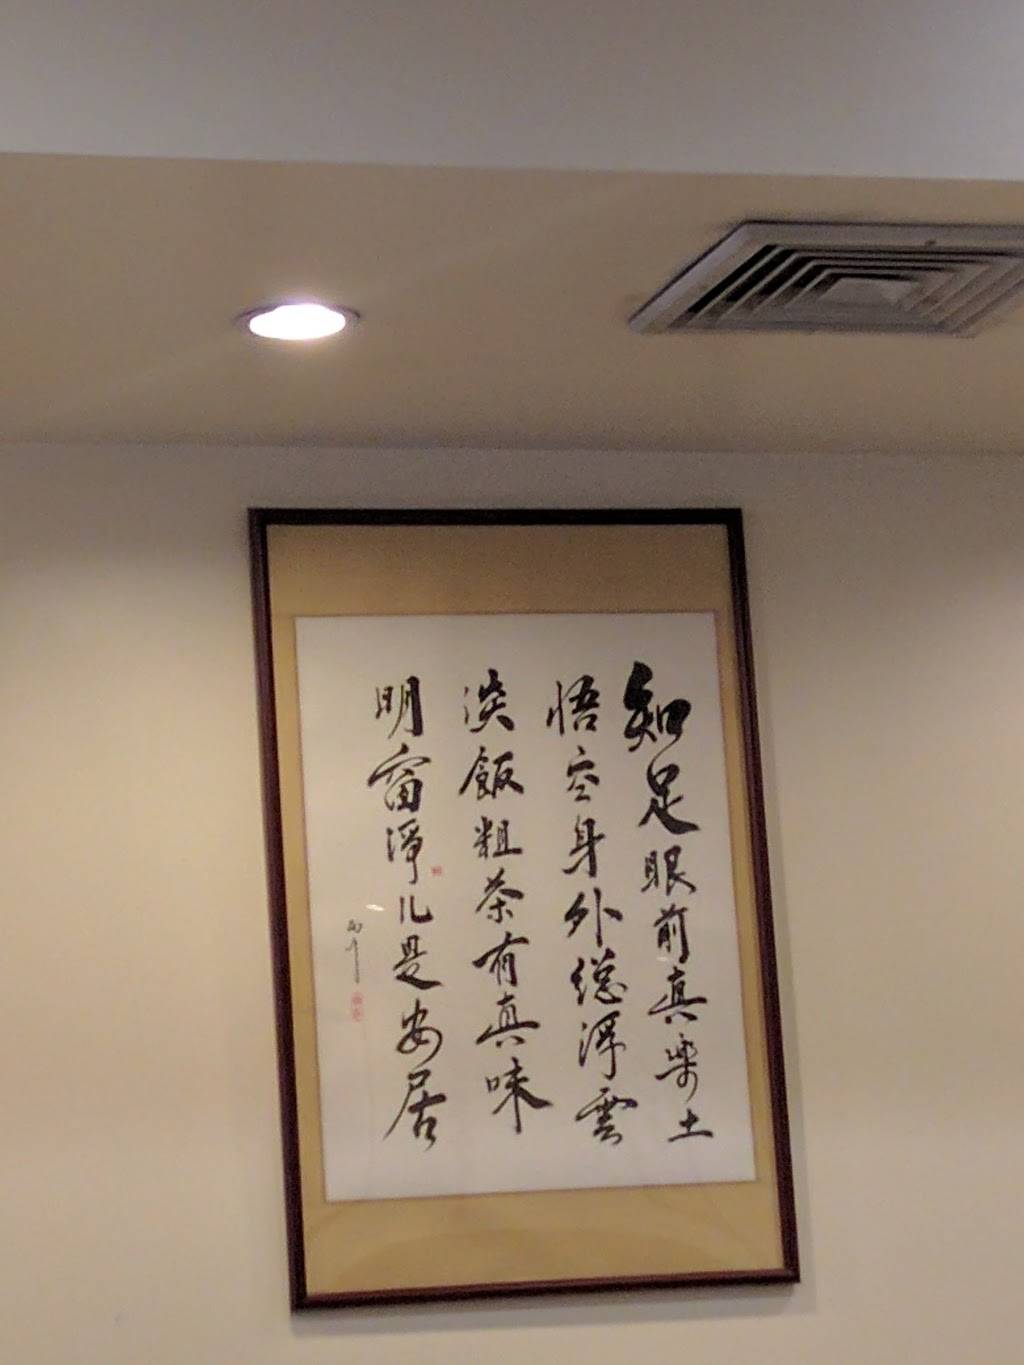 知足眼前真樂土
悟空身外總浮雲
淡飯粗茶有真味
明窗淨几是安居